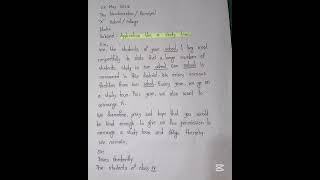 22 May 2024
The Headmaster / Principal
"X" School / College
Subject: Application for a study tour.
Sir,
We the students of your school, I beg most
respectfully to state that a large number of
students study in our school. Our school is
renowned in this district. We enjoy various
facilities from our school. Every year, we go on
a study tour. This year, we also want to
arrange it.
We therefore, pray and hope that you would
be kind enough to give us the permission to
arrange a study tour and oblige thereby.
We remain,
Sir
Yours obediently
The students of class IX